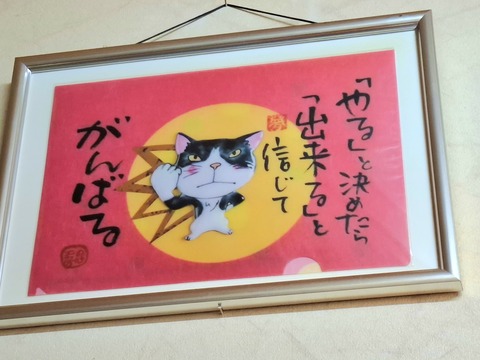 「やる」と決めたら
「出来る」と
信じて
がんばる